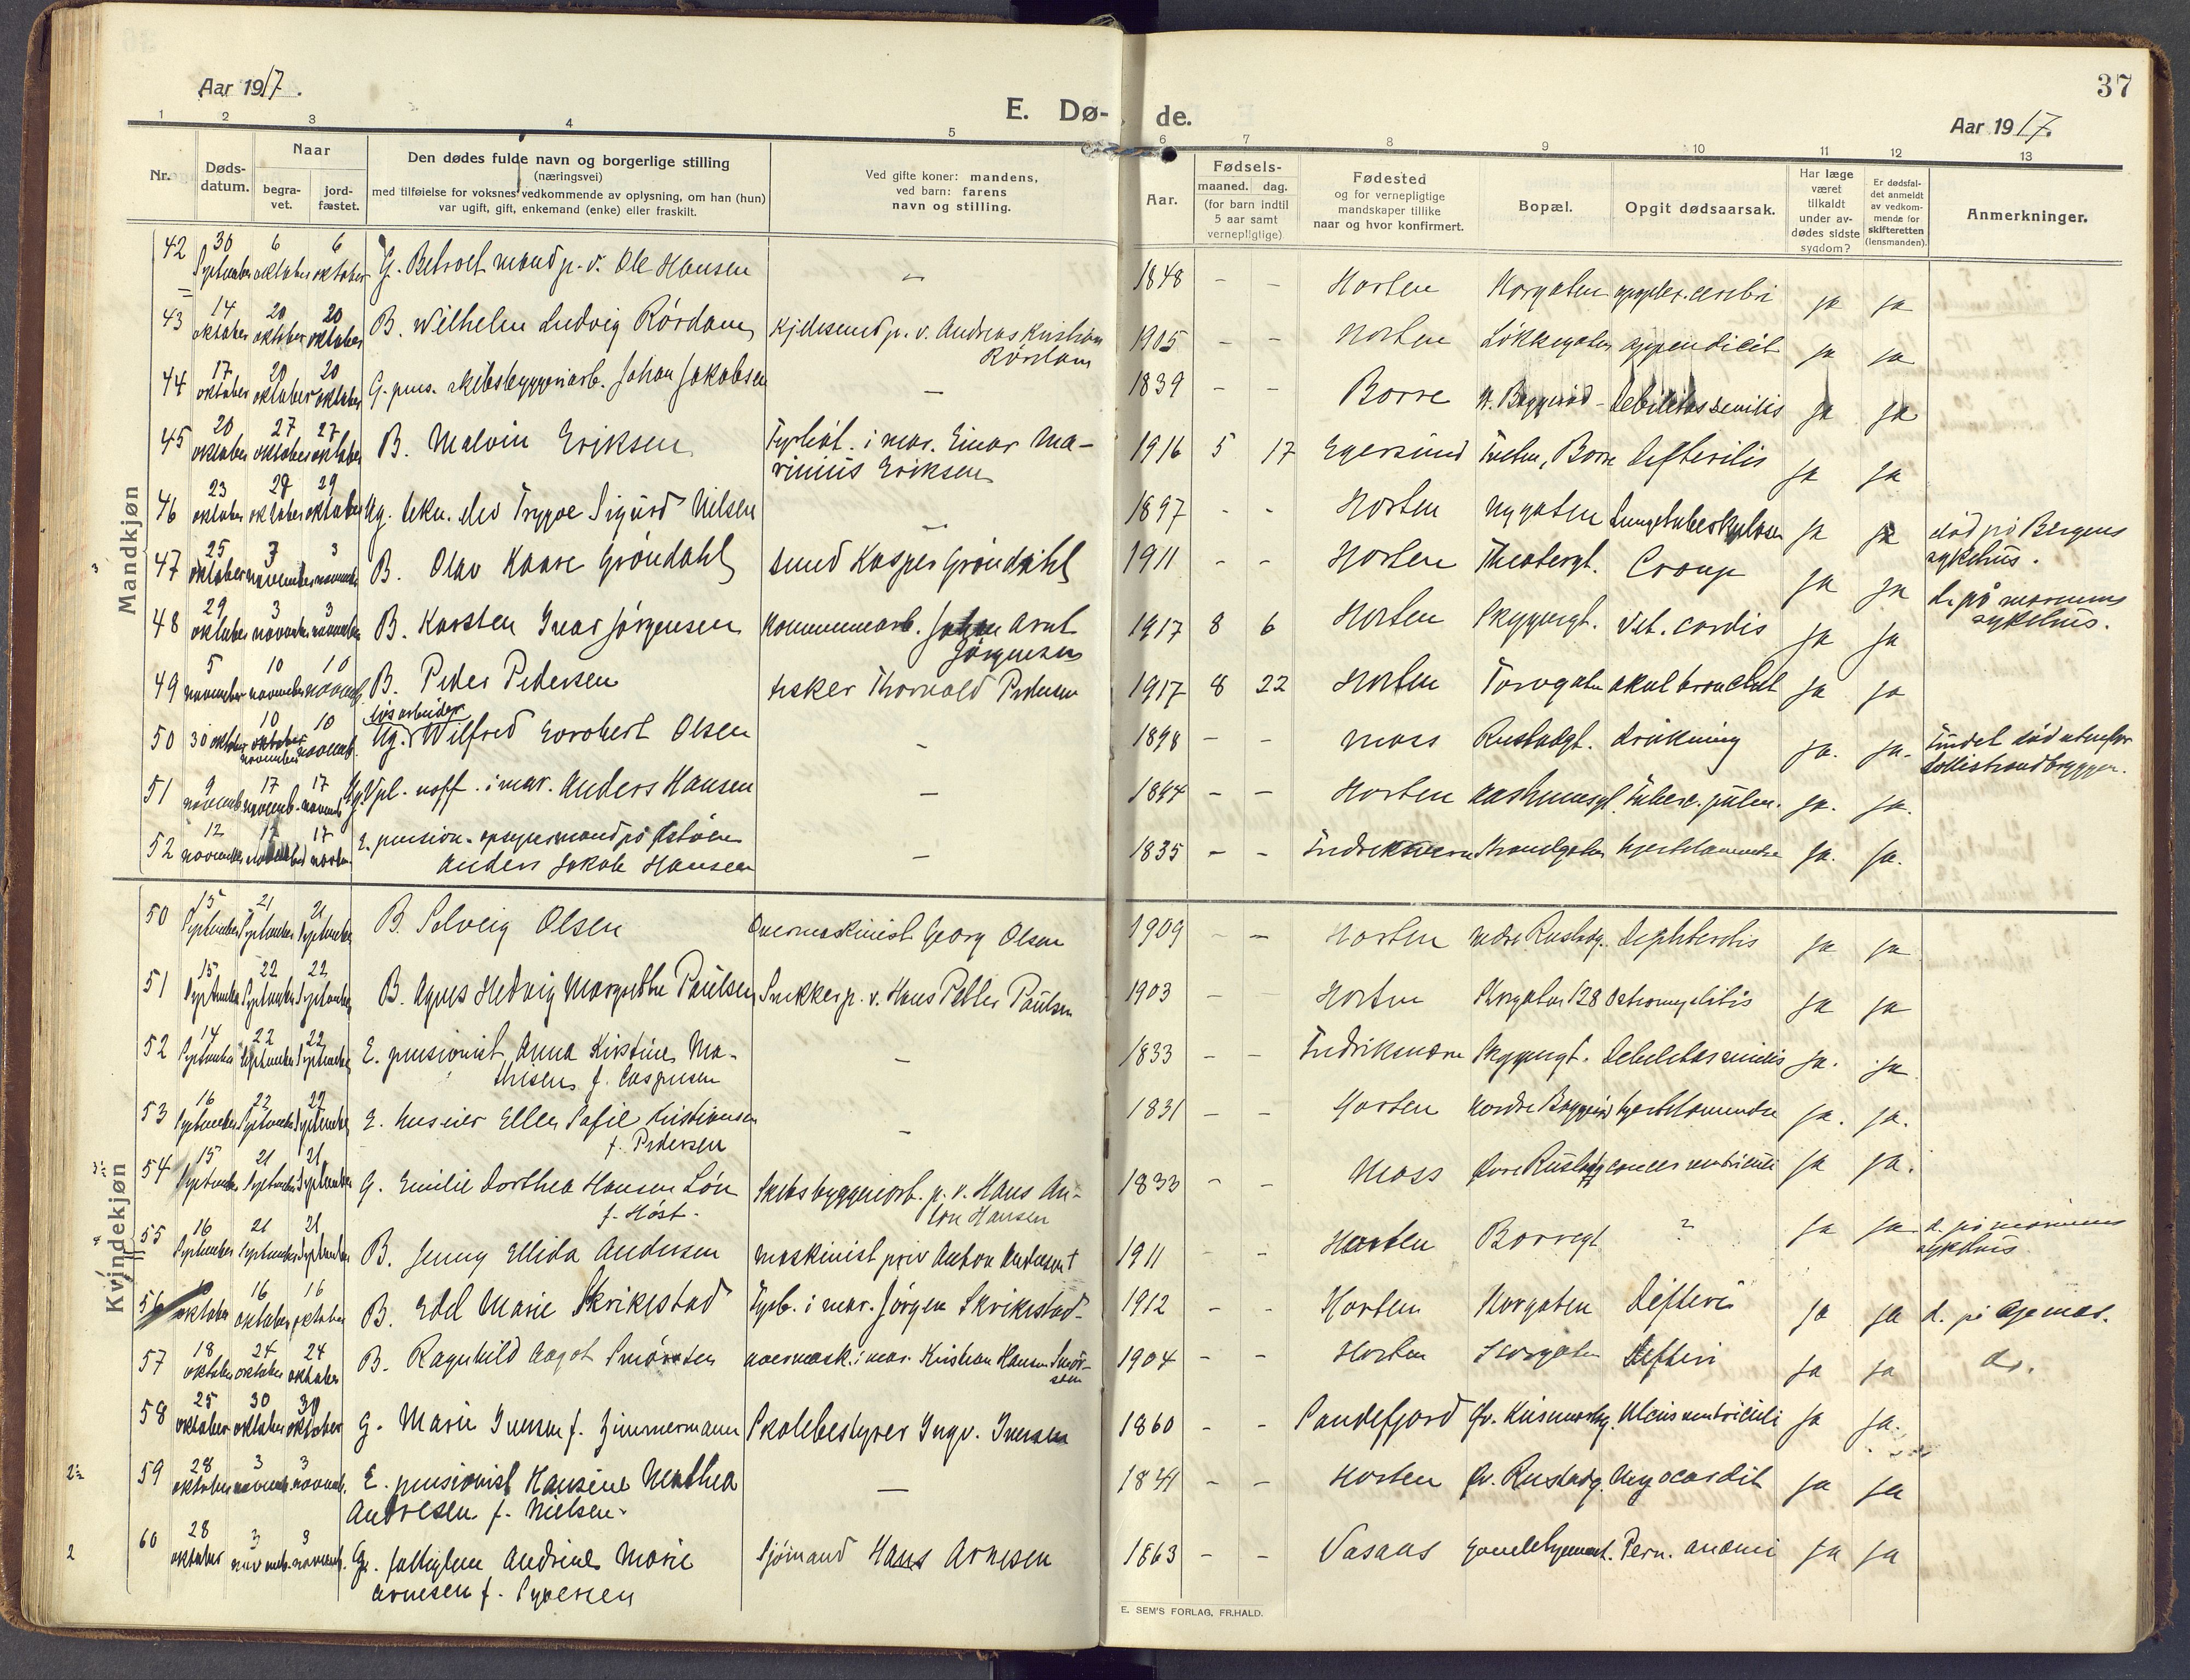 Aar 1917.
E. Dø-
de.
Aar 1917.
37
1 2 3 4 5 6 7 8 9 10 11 12 13
Nr.
Døds-
datum.
Naar
begra-
vet.
jord-
fæstet.
Den dødes fulde navn og borgerlige stilling
(næringsvei)
med tilføielse for voksnes vedkommende av oplysning, om han (hun)
var ugift, gift, enkemand (enke) eller fraskilt.
Ved gifte koner: mandens,
ved barn: farens
navn og stilling.
Aar.
Fødsels-
maaned. dag.
(for barn indtil
5 aar samt
vernepligtige)
Fødested
og for vernepligtige
mandskaper tillike
naar og hvor konfirmert.
Bopæl.
Opgit dødsaarsak.
Har læge
været
tilkaldt
under av-
dødes sidste
sygdom?
Er dødsfal-
det anmeldt
av vedkom-
mende for
skifteretten
(lensmanden).
Anmerkninger.
Mandkjøn
42 30 September 6 oktober 6 oktober G. Betroet mand p. v. Ole Hansen — 1848 - - Horten Norgaten apoplex. cerebri ja ja
43 14 oktober 20 oktober 20 oktober B. Wilhelm Ludvig Rördam Kjelesmed p. v. Andreas Kristian
Rördam 1905 - - Horten Lökkegaten appendicit ja ja
44 17 oktober 20 oktober 20 oktober G. pens. skibsbyggeriarb. Johan Jakobsen — 1839 - - Borre N. Baggeröd Debilitas senilis ja ja
45 20 oktober 27 oktober 27 oktober B. Malvin Eriksen Fyrböt. i mar. Einar Ma-
rinius Eriksen 1916 5 17 Egersund Tveten, Borre Difteritis ja ja
46 23 oktober 29 oktober 29 oktober Ug. tekn. elev Trygve Sigurd Nilsen — 1897 - - Horten Nygaten Lungetuberkulose ja ja död på Bergens
sykehus.
47 25 oktober 3 november 3 november B. Olav Kaare Gröndahl smed Kasper Gröndahl 1911 - - Horten Theatergt. Croup ja ja d. på marinens
sykehus.
48 29 oktober 3 november 3 november B. Karsten Ivar Jörgensen Kommunearb. Johan Arnt
Jörgensen 1917 8 6 Horten Skyggengt. Vit. cordis ja ja
49 5 november 10 november 10 novemb. B. Peder Pedersen fisker Thorvald Pedersen 1917 8 22 Horten Torvgaten akut bronchit ja ja
50 30 oktober 10 oktober november 10 novemb. lös arbeider
Ug. Wilfred Olsen - 1898 - - Moss Rustadgt. drukning ja. ja. Fundet död utenfor
bryggen.
51 9 novemb. 17 novemb. 17 novemb. Ug. Vpl. uoff. i mar. Anders Hansen — 1894 - - Horten Tuberc. pulm. ja. ja.
52 12 november 17 november 17 novbr. E. pension. opsynsmand på
Anders Jakob Hansen — 1835 - - Fredriksværn Strandgaten hjertelammelse ja. ja.
Kvindekjøn
50 15 September 21 September 21 September B. Solveig Olsen Overmaskinist Georg Olsen 1909 - - Horten nedre Rustadg. diphteritis ja ja
51 15 September 22 September 22 September B. Agnes Hedvig Margrethe Paulsen Snekker p. v. Hans Petter Paulsen 1903 - - Horten Storgaten 128 Osteomyelitis ja ja
52 14 September 22 September 22 September E. pensionist Anna Kirstine Ma-
thisen f. Caspersen — 1833 - - Fredriksværn Skyggengt. Debilitas senilis ja. ja
53 16 September 22 September 22 September E. huseier Ellen Sofie Kristiansen
f. Pedersen — 1831 - - Horten Nordre Baggeröd hjertelammelse ja. ja.
54 15 September 21 September 21 September G. Emilie Dorthea Hansen Lön
f. Höst. Skibsbyggeriarb. p. v. Hans An-
ton Hansen 1833 - - Moss övre Rustadg cancer ventriculi ja ja.
55 16 September 21 September 21 September B. Jenny Ellida Andersen maskinist priv Anton Andersen † 1911 - - Horten Borregt ? ja ja d. på marinens
sykehus.
56 oktober 16 oktober 16 oktober B. Edel Marie Skrikestad Fyrb. i mar. Jörgen Skrikestad 1912 - - Horten Norgaten Difteri ja ja d. på
57 18 oktober 24 oktober 24 oktober B. Ragnhild Aagot overmask. i mar. Kristian Hansen 1904 - - Horten Storgaten Difteri ja ja do.
58 25 oktober 30 oktober 30 oktober G. Marie Iversen f. Zimmermann Skolebestyrer Ingv. Iversen 1860 - - Sandefjord Ulcus ventriculi ja ja.
2½ 59 28 oktober 3 novemb. 3 novemb. E. pensionist Hansine Mathea
Andresen f. Nielsen. — 1841 - - Horten Öv. Rustadg. Myocardit ja ja
2 60 28 oktober 3 novemb. 3 novemb. G. fattiglem Andrine Marie
Arnesen f. Syversen Sjömand Hans Arnesen 1863 - - Vasaas Gamlehjemmet. Pern. anæmi ja ja
E. SEM'S FORLAG, FR.HALD.